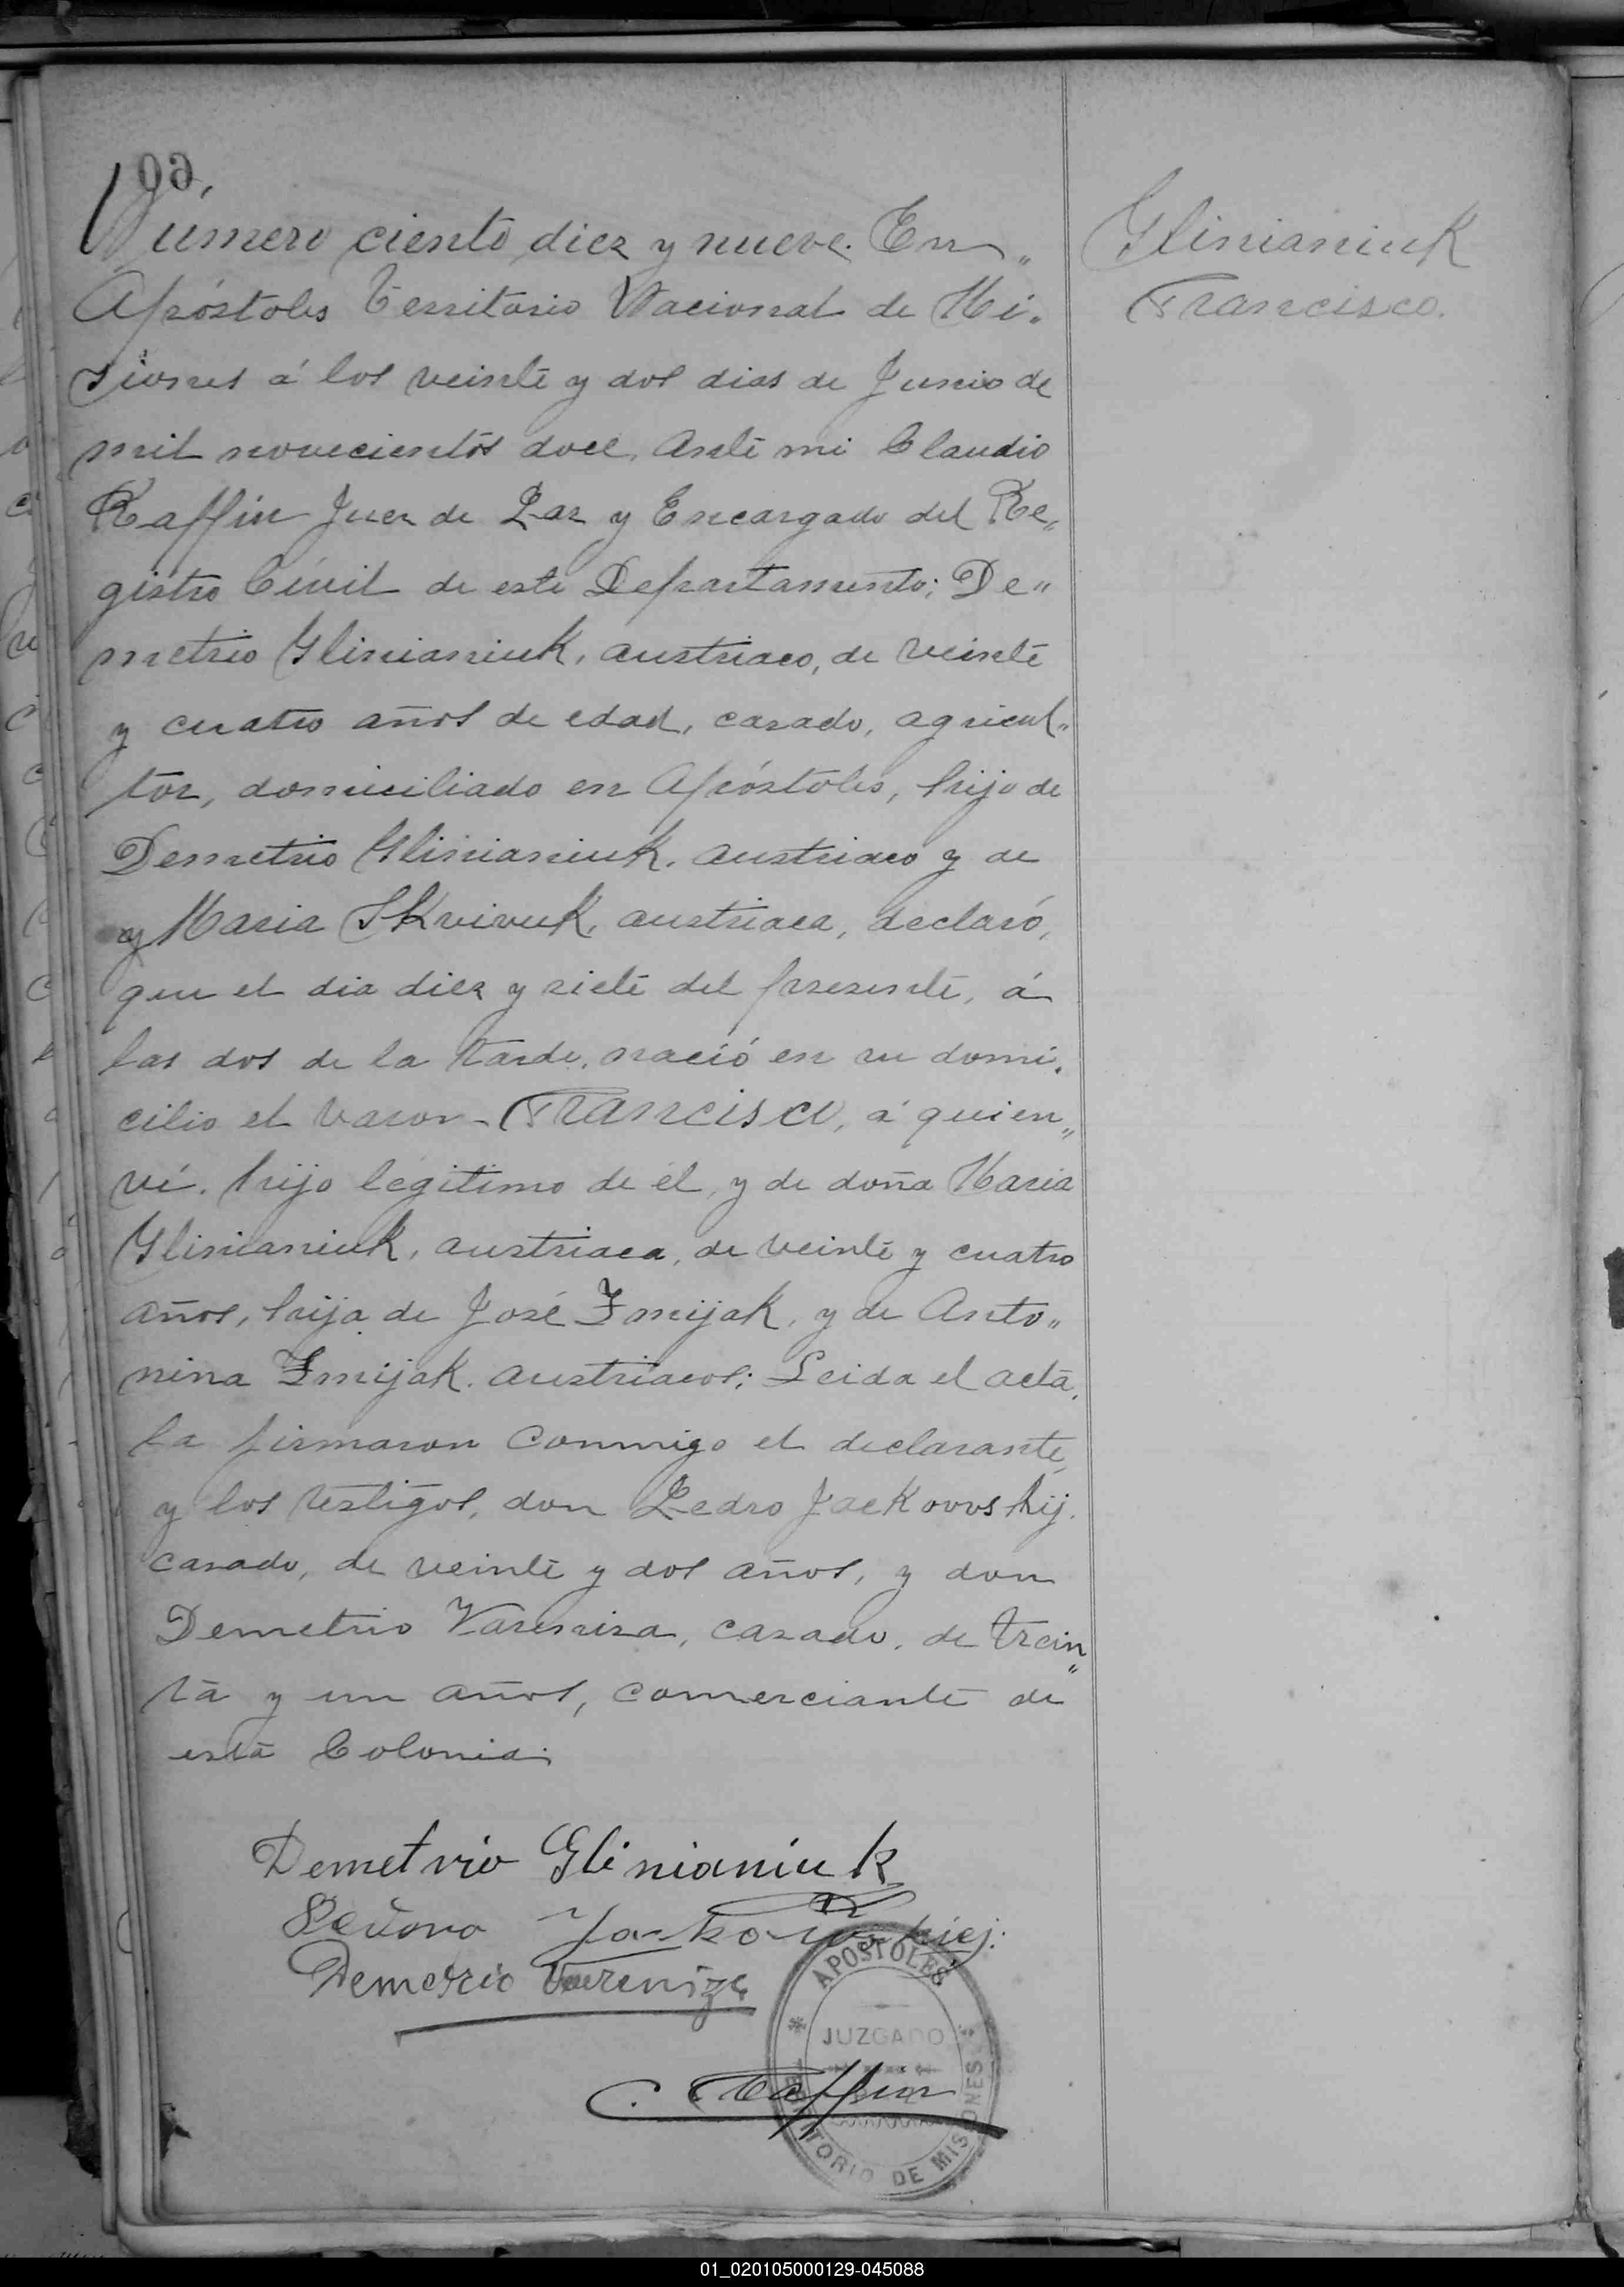 Número ciento diez y nueve. En„
Apóstoles Territorio Nacional de Mi„
siones á los veinte y dos dias de Junio de
mil novecientos doce, ante mi Claudio
Raffin Juez de Paz y Encargado del Re„
gistro Civil de este Departamento; De„
metrio Glinianiuk, austriaco, de veinte
y cuatro años de edad, casado, agricul„
tor, domiciliado en Apóstoles, hijo de
Demetrio Glinianiuk, austriaco y de
y Maria Skvivuk, austriaca, declaró,
que el dia diez y siete del presente, á
las dos de la tarde, nació en su domi„
cilio el varon - Francisco, á quien„
ví, hijo legítimo de él, y de doña Maria
Glinianiuk, austriaca, de veinte y cuatro
años, hija de José Zmijak, y de Anto„
nina Zmijak, austriacos; Leida el acta,
la firmaron conmigo el declarante,
y los testigos, don Pedro Jackovvskij,
casado, de veinte y dos años, y don
Demetrio Vareniza, casado, de trein„
ta y un años, comerciante de
esta Colonia.
Glinianiuk
Francisco.
Demetrio Glinianiuk
Demetrio Vareniza
C. Raffin
APOSTOLES
JUZGADO
TERRITORIO DE MISIONES
01_020105000129-045088